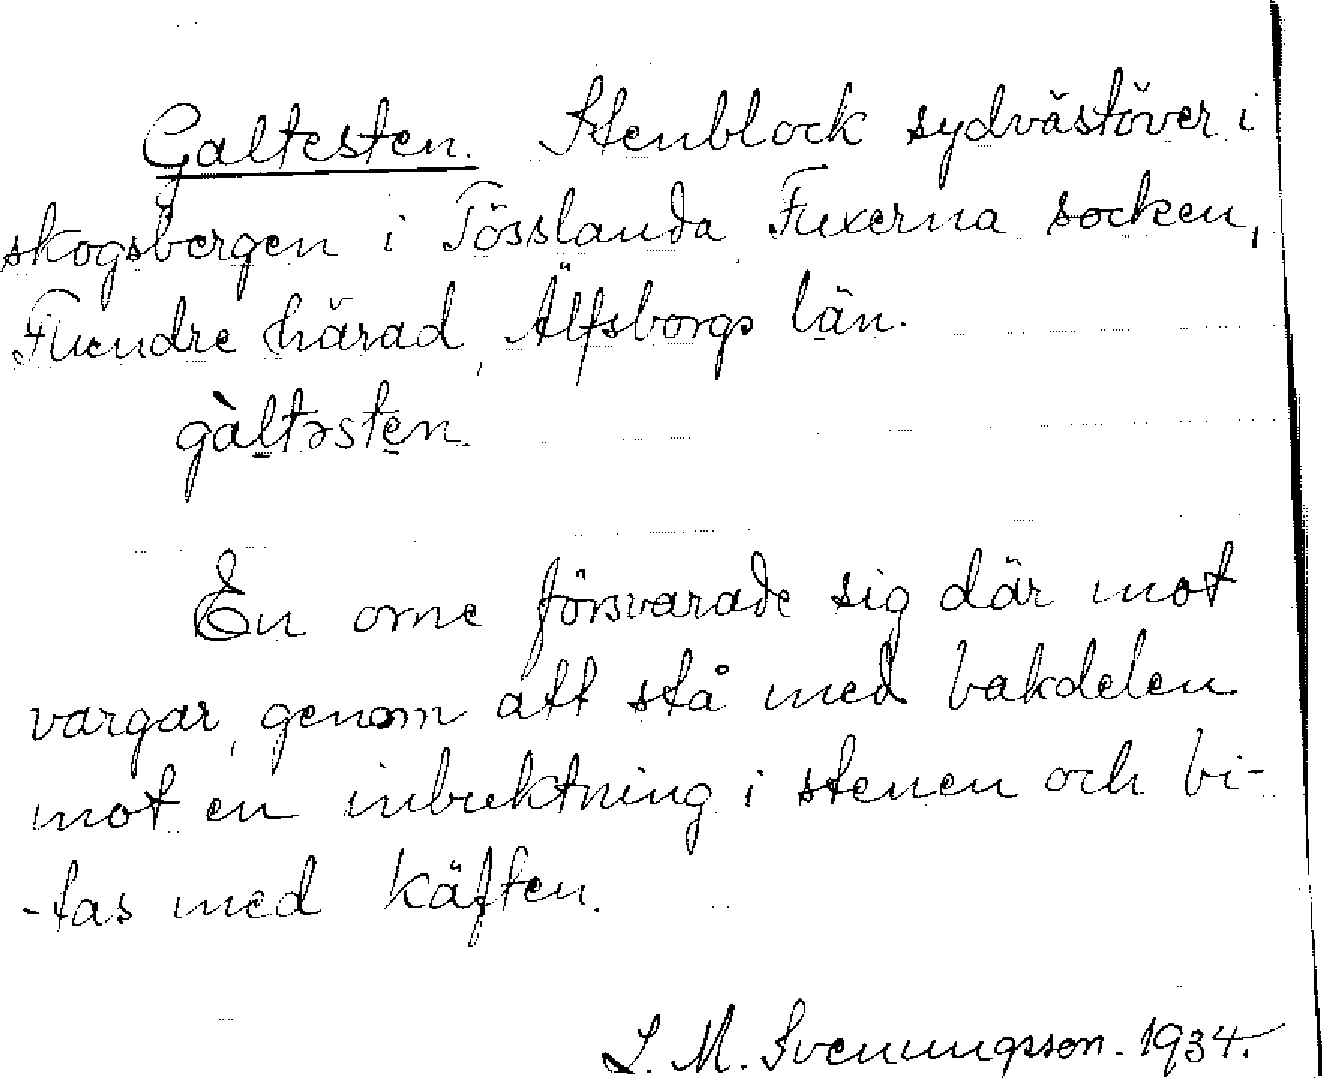 Galtesten. Stenblock sydväståver i
skogsbergen i Tösslanda Fuxerna socken,
Flundre härad, Älfsborgs län.
gàltəsten.
En orne försvarade sig där mot
vargar, genom att stå med bakdelen
mot en inbuktning i stenen och bi-
-tas med käften.
L. M. Svenungsson. 1934.